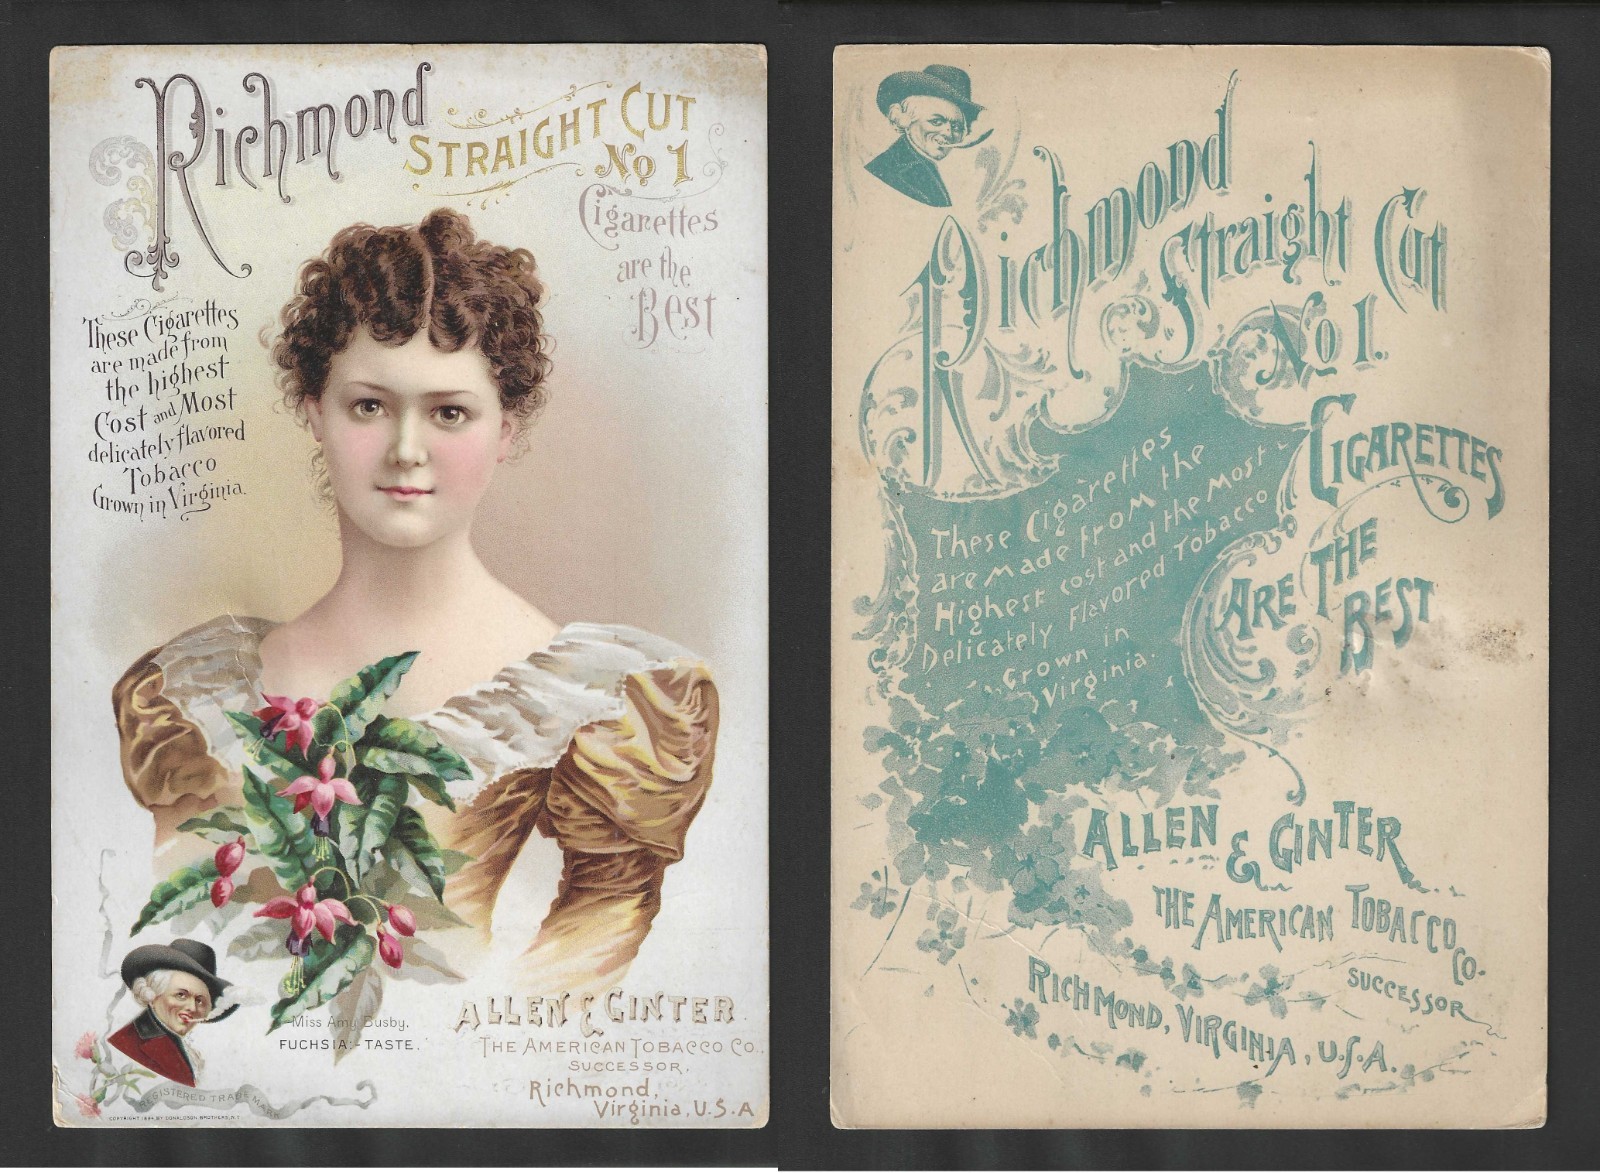 Richmond
STRAIGHT CUT
No 1
Cigarettes
are the
Best
These Cigarettes
are made from
the highest
Cost and Most
delicately flavored
Tobacco
Grown in Virginia.
Miss Amy Busby.
FUCHSIA:-TASTE.
REGISTERED TRADE MARK
COPYRIGHT 1894 BY DONALDSON BROTHERS, N.Y.
ALLEN & GINTER
THE AMERICAN TOBACCO CO.,
SUCCESSOR,
Richmond,
Virginia, U.S.A
Richmond
Straight Cut
No 1.
CIGARETTES
ARE THE
BEST
These Cigarettes
are made from the
Highest cost and the Most
Delicately Flavored Tobacco
Grown
in
Virginia.
ALLEN
& GINTER
THE AMERICAN TOBACCO
CO.
SUCCESSOR
RICHMOND, VIRGINIA, U.S.A.